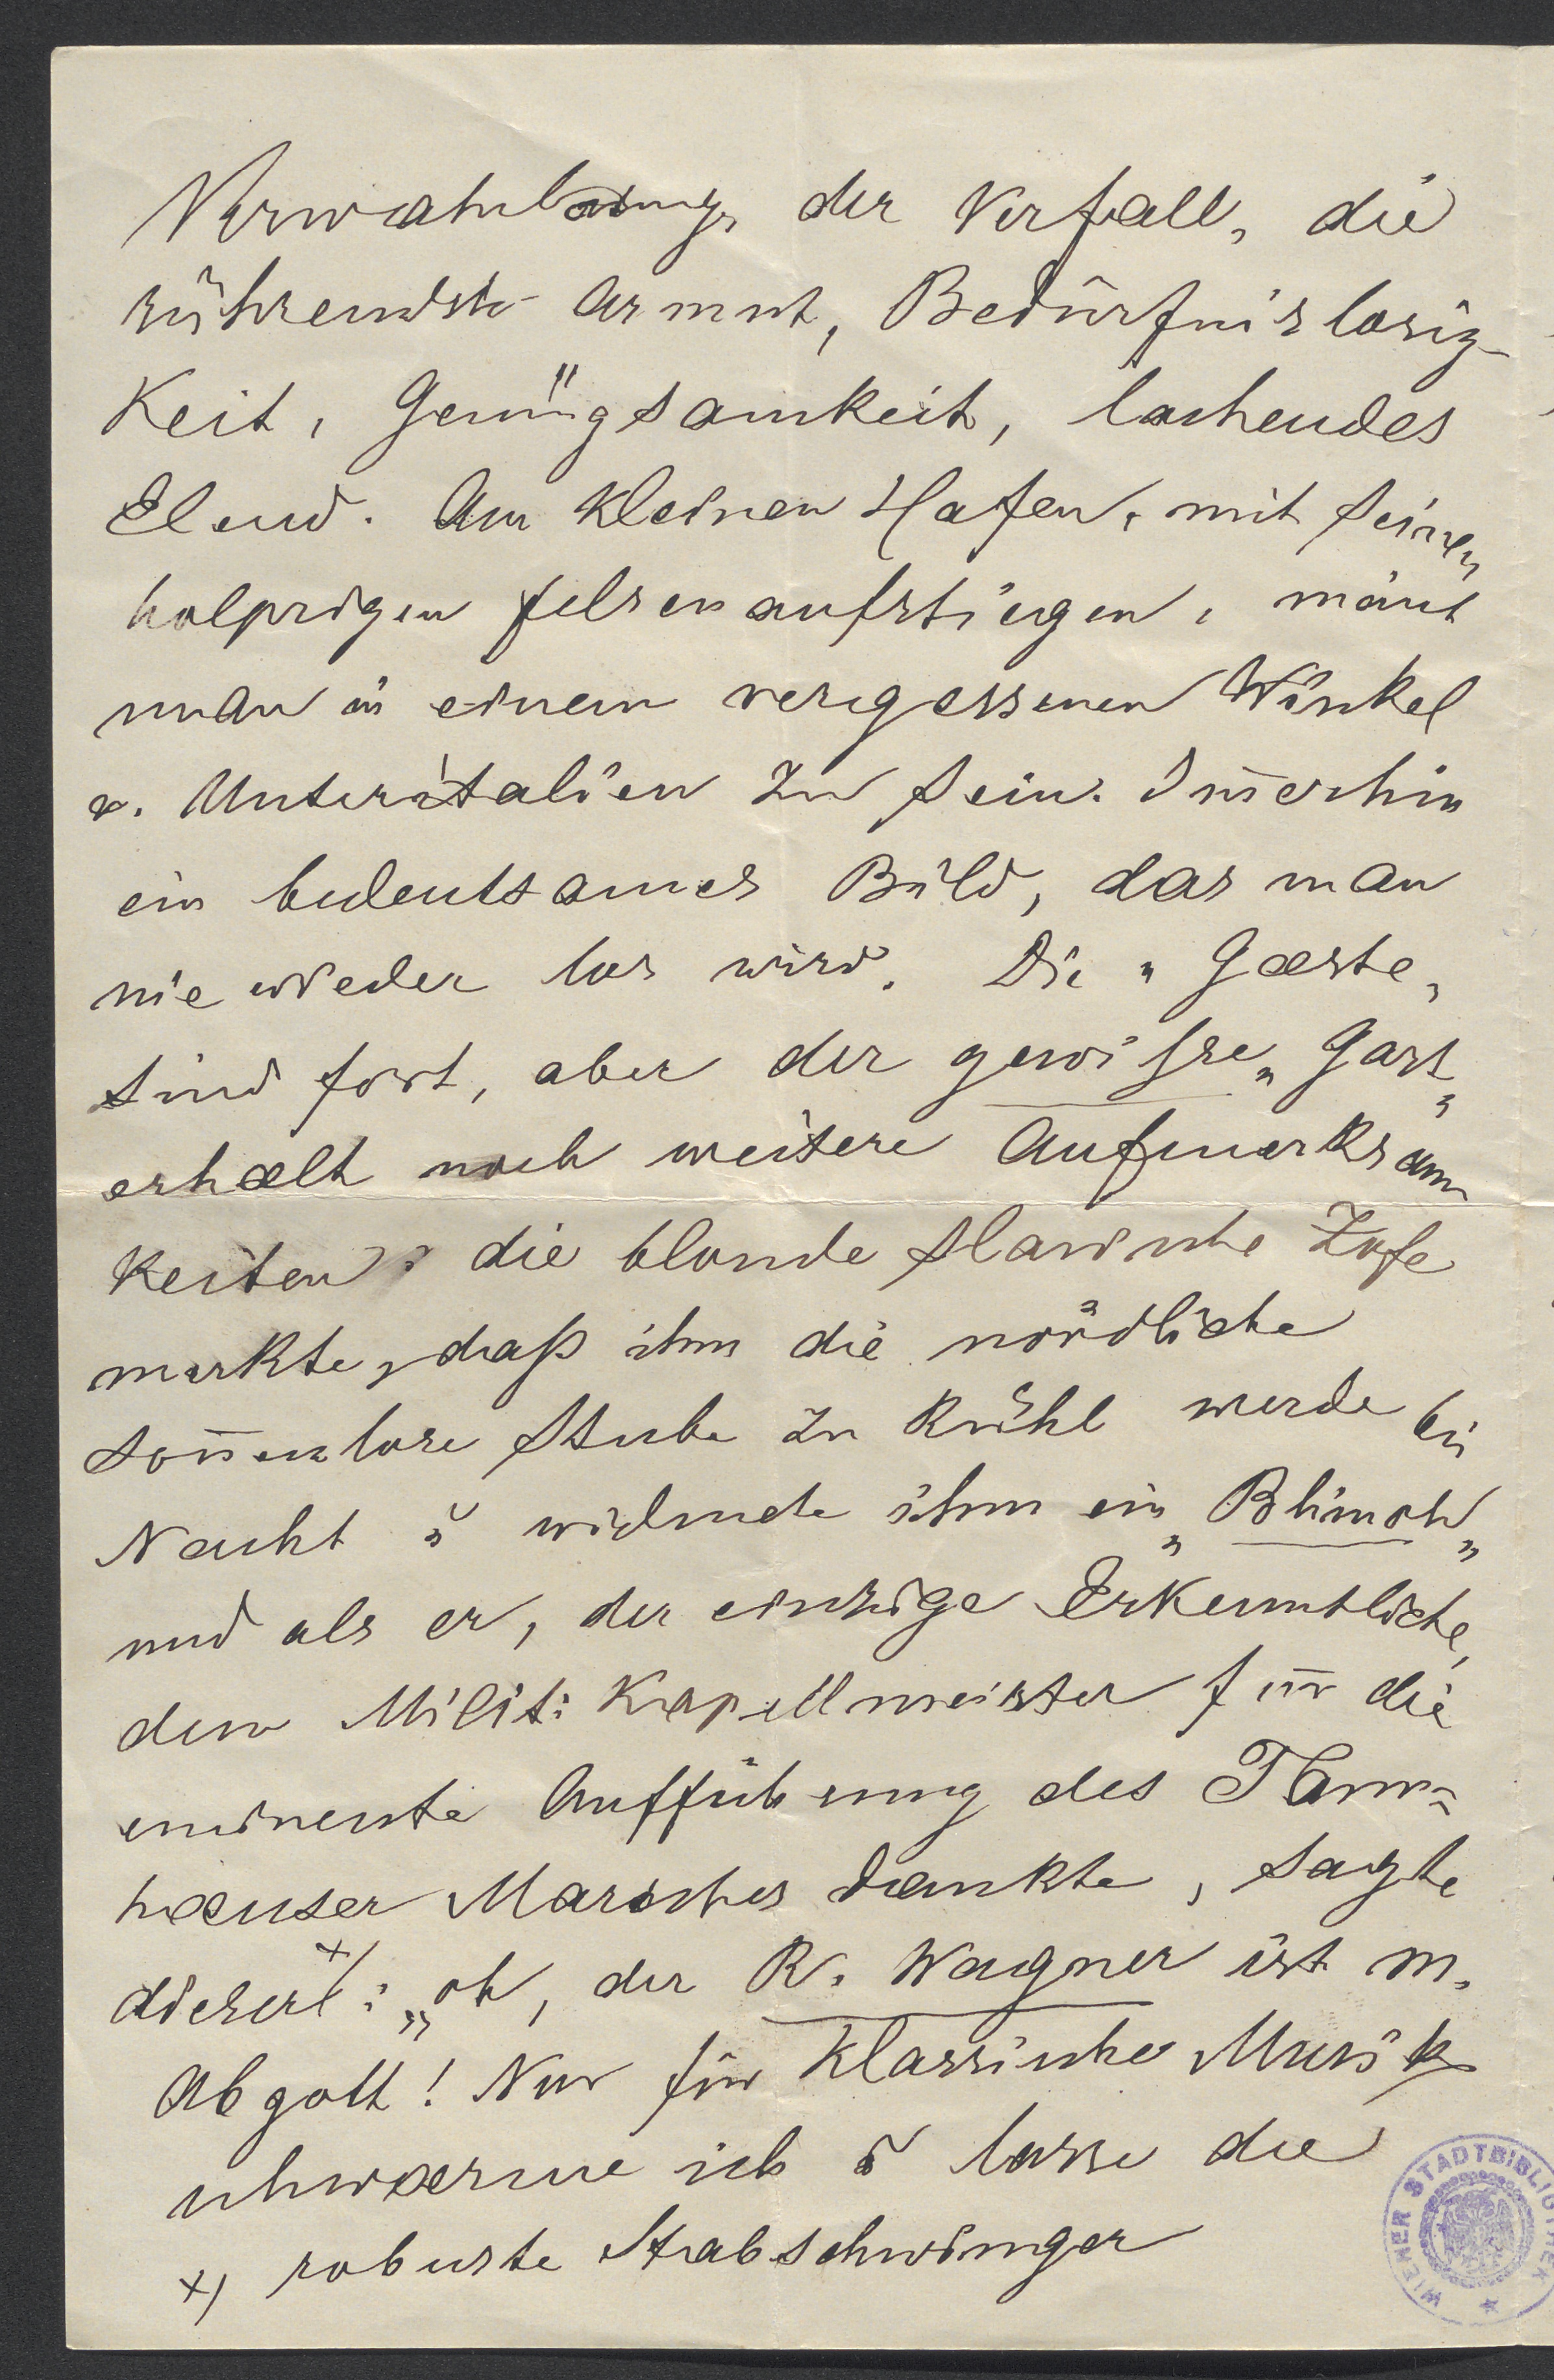 Verwahrlosung, der Verfall, die
rührendste Armut, Bedürfnislosig-
keit, Genügsamkeit, lachendes
Elend. Am kleinen Hafen, mit seinen
holprigen Felsenaufstiegen, meint
man in einem vergessenen Winkel
v. Unteritalien zu sein. Im̄erhin
ein bedeutsames Bild, das man
nie wieder los wird. Die „Gæste„
sind fort, aber der gewisse „Gast„
erhælt noch weitere Aufmerksam
keiten: die blonde slavische Zofe
merkte, daß ihm die nördliche
son̄enlose Stube zu kühl werde bei
Nacht u widmete ihm ein „Plimoh„
und als er, der einzige Erkenntliche,
dem Milit: Kapellmeister für die
eminente Aufführung des Tann-
hæuser Marsches dankte, sagte
dieser x): „oh, der R. Wagner ist m.
Abgott! Nur für klassische Musik
schwærme ich u lasse die
x) robuste Stabschwinger
WIENER STADTBIBLIOTHEK